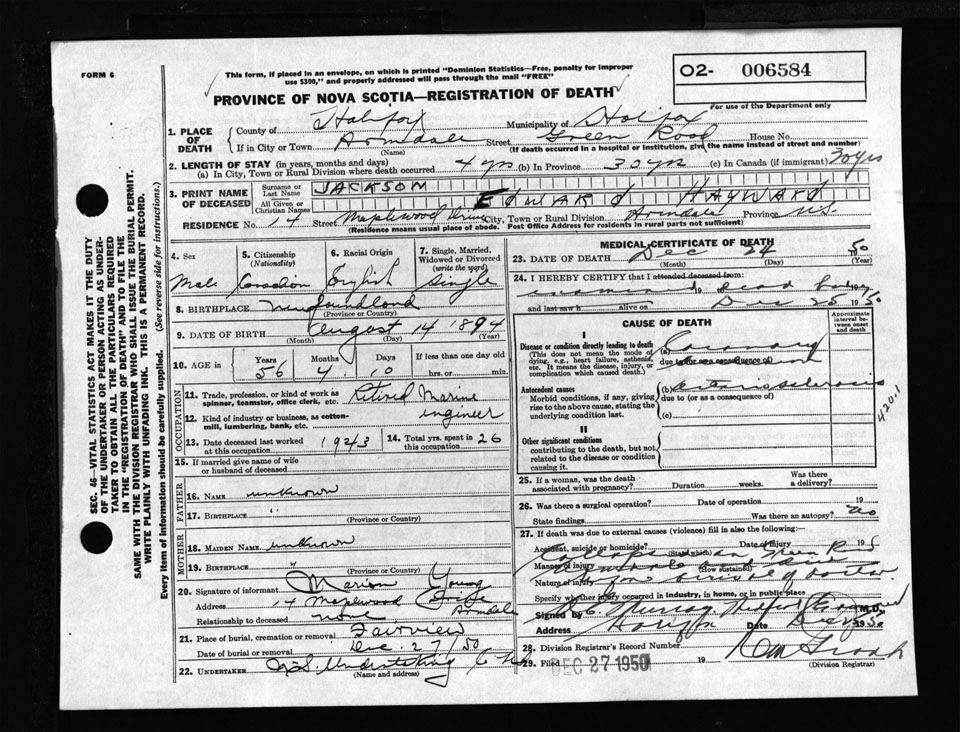 FORM 6
This form, if placed in an envelope, on which is printed "Dominion Statistics—Free, penalty for improper
use $300," and properly addressed will pass through the mail "FREE"
O2- 006584
For use of the Department only
PROVINCE OF NOVA SCOTIA—REGISTRATION OF DEATH
1. PLACE OF DEATH
County of Halifax Municipality of Halifax
If in City or Town Armdale Street Green Road House No.
(Name) (If death occurred in a hospital or institution, give the name instead of street and number)
2. LENGTH OF STAY (in years, months and days)
(a) In City, Town or Rural Division where death occurred 4 yrs (b) In Province 30 yrs (c) In Canada (if immigrant) 30 yrs
3. PRINT NAME OF DECEASED
Surname or Last Name JACKSON
All Given or Christian Names EDWARD HAYWARD
RESIDENCE No. 17 Street Maplewood Drive City, Town or Rural Division Armdale Province N.S.
(Residence means usual place of abode. Post Office Address for residents in rural parts not sufficient)
4. Sex
Male
5. Citizenship
(Nationality)
Canadian
6. Racial Origin
English
7. Single, Married, Widowed or Divorced
(write the word)
Single
8. BIRTHPLACE Newfoundland
(Province or Country)
9. DATE OF BIRTH August 14 1894
(Month) (Day) (Year)
10. AGE in Years 56 Months 4 Days 10 If less than one day old
hrs. or min.
OCCUPATION
11. Trade, profession, or kind of work as
spinner, teamster, office clerk, etc. Retired Marine
12. Kind of industry or business, as cotton-
mill, lumbering, bank, etc. engineer
13. Date deceased last worked
at this occupation 1943
14. Total yrs. spent in
this occupation 26
15. If married give name of wife
or husband of deceased
FATHER
16. NAME unknown
17. BIRTHPLACE "
(Province or Country)
MOTHER
18. MAIDEN NAME unknown
19. BIRTHPLACE
(Province or Country)
20. Signature of informant Marion Young
Address 17 Maplewood Drive Armdale
Relationship to deceased none
21. Place of burial, cremation or removal Fairview
Date of burial or removal Dec. 27/50
22. UNDERTAKER N.S. Undertaking Co
(Name and address)
MEDICAL CERTIFICATE OF DEATH
23. DATE OF DEATH Dec 24 1950
(Month) (Day) (Year)
24. I HEREBY CERTIFY that I attended deceased from:
examined dead body
and last saw h alive on Dec 25 1950
CAUSE OF DEATH
Approximate interval between onset and death
I
Disease or condition directly leading to death
(This does not mean the mode of dying, e.g., heart failure, asthenia, etc. It means the disease, injury, or complication which caused death.)
(a) Coronary
due to (or as a consequence of)
Antecedent causes
Morbid conditions, if any, giving rise to the above cause, stating the underlying condition last.
(b) arteriosclerosis
due to (or as a consequence of)
(c)
420.1
II
Other significant conditions
contributing to the death, but not related to the disease or condition causing it.
25. If a woman, was the death
associated with pregnancy? Duration weeks. Was there a delivery?
26. Was there a surgical operation? Date of operation 195
State findings Was there an autopsy? no
27. If death was due to external causes (violence) fill in also the following:—
Accident, suicide or homicide? Date of injury 195
(State which)
Manner of injury
(How sustained)
Nature of injury
Collapsed on Green Rd
before arrival of doctor.
Specify whether injury occurred in industry, in home, or in public place
Signed by Murray M.D.
Address Halifax Date Dec 1950
28. Division Registrar's Record Number
29. Filed DEC 27 1950 19
(Division Registrar)
SEC. 46—VITAL STATISTICS ACT MAKES IT THE DUTY
OF THE UNDERTAKER OR PERSON ACTING AS UNDER-
TAKER TO OBTAIN ALL THE PARTICULARS REQUIRED
IN THE "REGISTRATION OF DEATH" AND TO FILE THE
SAME WITH THE DIVISION REGISTRAR WHO SHALL ISSUE THE BURIAL PERMIT.
WRITE PLAINLY WITH UNFADING INK. THIS IS A PERMANENT RECORD.
Every item of information should be carefully supplied. (See reverse side for instructions.)